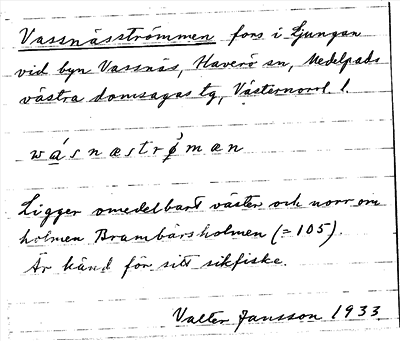 Vassnässtrømmen fors i Ljungan
vid byn Vassnäs, Haverö sn, Medelpads
västra domsagas tg, Västernorrl l.
wásnæstrǿmæn
Ligger omedelbart väster och norr om
holmen Brambärsholmen (=105).
Är känd för sitt sikfiske.
Valter Jansson 1933.